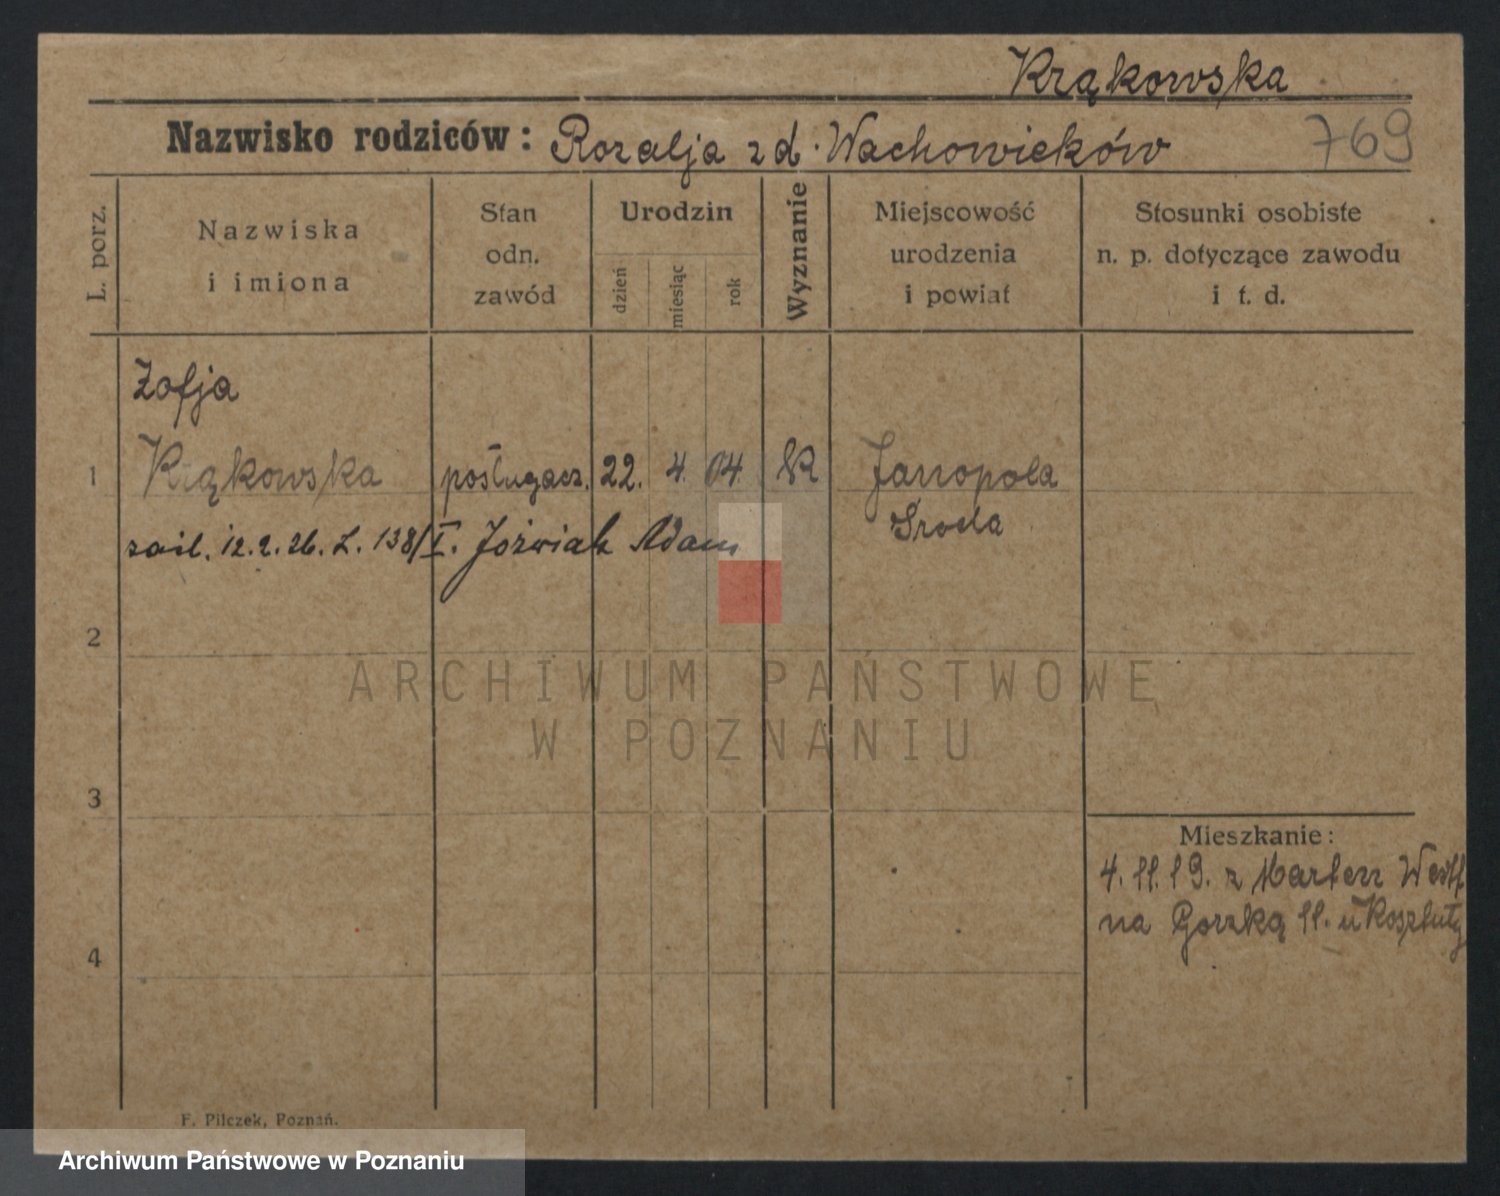 Krąkowska
Nazwisko rodziców: Rozalja zd. Wachowicków 769
L. porz.
Nazwiska
i imiona
Stan
odn.
zawód
Urodzin
dzień
miesiąc
rok
Wyznanie
Miejscowość
urodzenia
i powiat
Stosunki osobiste
n. p. dotyczące zawodu
i t. d.
Zofja
1 Krąkowska posługacz. 22. 4. 04. K Janopola
Środa
zaśl. 12.2.26. L. 138/I. Jóźwiak Adam
2
ARCHIWUM PAŃSTWOWE
W POZNANIU
3
Mieszkanie:
4. 11. 19. z Marten Westf.
na Gorzką 11. u Koszuty
4
F. Pilczek, Poznań.
Archiwum Państwowe w Poznaniu